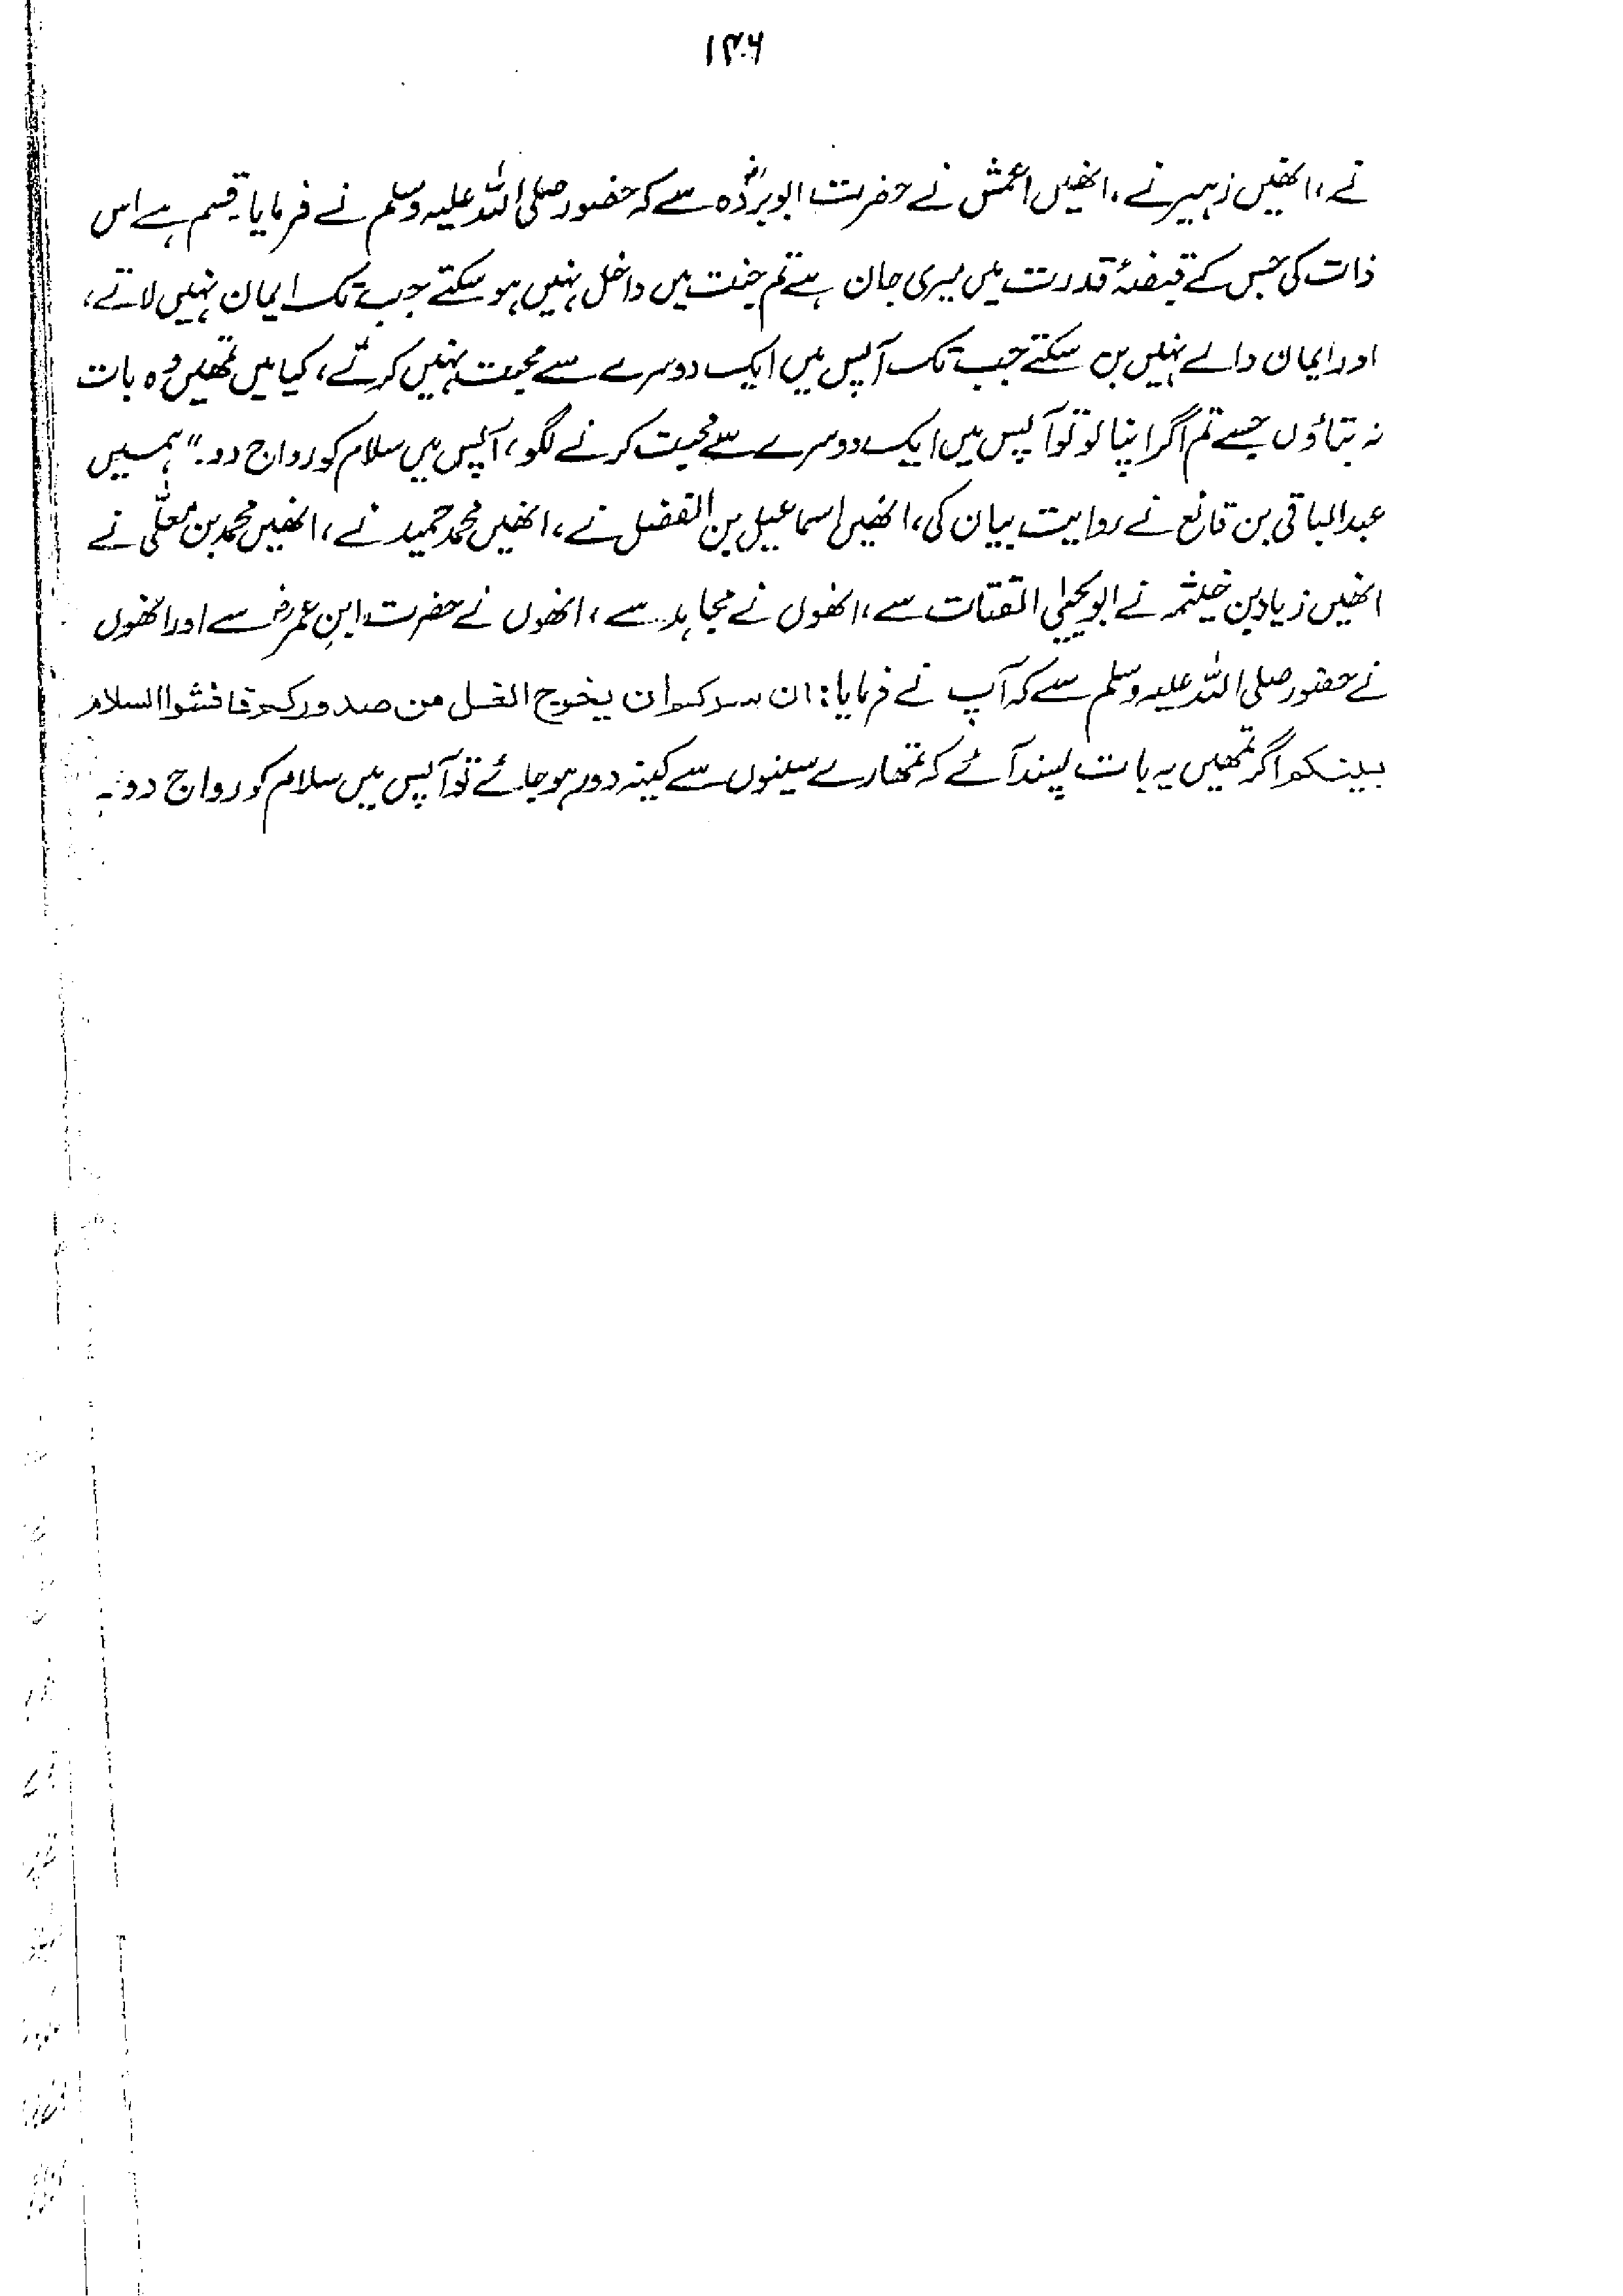 ۱۴۶
نے، انھیں زہیر نے، انھیں اعمش نے حضرت ابوبردہؓ سے کہ حضور صلی اللہ علیہ وسلم نے فرمایا۔ قسم ہے اس
ذات کی جس کے قبضۂ قدرت میں میری جان ہے تم جنت میں داخل نہیں ہو سکتے جب تک ایمان نہیں لاتے،
اور ایمان والے نہیں بن سکتے جب تک آپس میں ایک دوسرے سے محبت نہیں کرتے، کیا میں تمھیں وہ بات
نہ بتاؤں جسے تم اگر اپنا لو تو آپس میں ایک دوسرے سے محبت کرنے لگو، آپس میں سلام کو رواج دو۔" ہمیں
عبدالباقی بن قانع نے روایت بیان کی، انھیں اسماعیل بن الفضل نے، انھیں محمد حمید نے، انھیں محمد بن معلّٰی نے
انھیں زیاد بن خیثمہ نے ابو یحیٰی القتات سے، انھوں نے مجاہد سے، انھوں نے حضرت ابن عمرؓ سے اور انھوں
نے حضور صلی اللہ علیہ وسلم سے کہ آپ نے فرمایا: ان سرکم ان یخرج الغل من صدورکم فافشوا السلام
بینکم اگر تمھیں یہ بات پسند آئے کہ تمھارے سینوں سے کینہ دور ہو جائے تو آپس میں سلام کو رواج دو۔